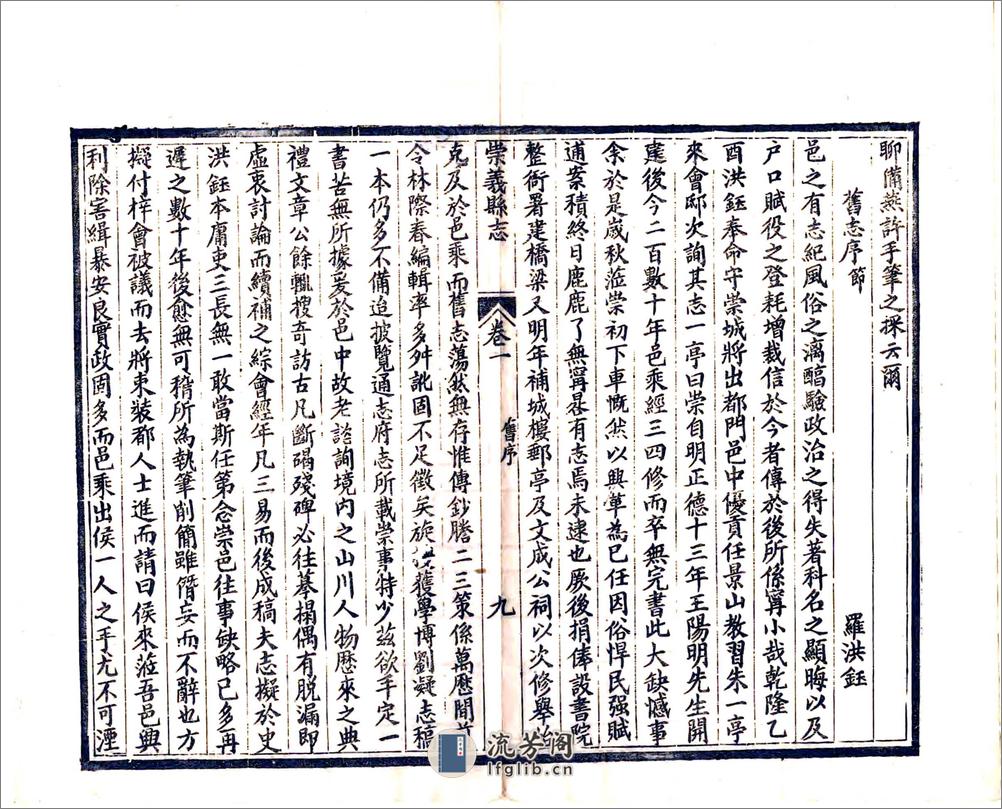 聊備燕許手筆之採云爾
舊志序節 羅洪鈺
邑之有志紀風俗之漓醕驗政治之得失著科名之顯晦以及
户口賦役之登耗增裁信於今者傳於後所係寧小哉乾隆乙
酉洪鈺奉命守崇城將出都門邑中優貢任景山教習朱一亭
來會邸次詢其志一亭曰崇自明正德十三年王陽明先生開
建後今二百數十年邑乘經三四修而卒無完書此大缺憾事
余於是歲秋蒞崇初下車慨然以興革為已任因俗悍民强賦
逋案積終日鹿鹿了無寧晷有志焉未逮也厥後捐俸設書院
整衙署建橋梁又明年補城樓郵亭及文成公祠以次修舉
崇義縣志 卷一 舊序 九
克及於邑乘而舊志蕩然無存惟傳鈔謄二三策係萬歷間
令林際春編輯率多舛訛固不足徵矣旋獲學博劉凝志稿
一本仍多不備追披覽通志府志所載崇事特少兹欲手定一
書苦無所據爰於邑中故老諮詢境内之山川人物歷來之典
禮文章公餘輒搜奇訪古凡斷碣殘碑必往摹搨偶有脱漏即
虛衷討論而續補之綜會經年凡三易而後成稿夫志擬於史
洪鈺本庸吏三長無一敢當斯任第念崇邑往事缺略已多再
遲之數十年後愈無可稽所為執筆削簡雖僭妄而不辭也方
擬付梓會被議而去將束裝都人士進而請曰侯來蒞吾邑興
利除害緝暴安良實政固多而邑乘出侯一人之手尤不可湮
流芳阁
lfglib.cn